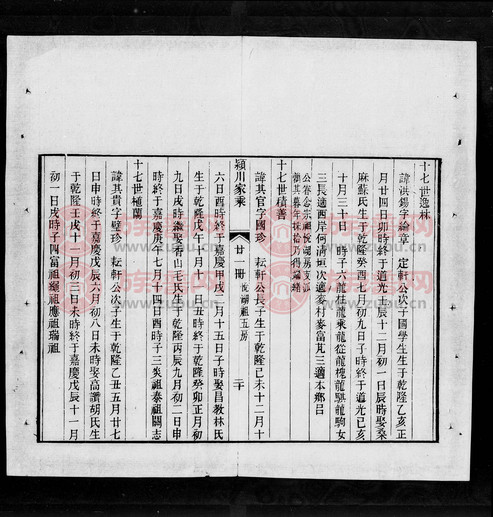 十七世逸林
諱洪錫字綸章 定軒公次子國學生生于乾隆乙亥正
月廿四日卯時終于道光壬辰十二月初一日辰時娶桑
麻蘇氏生于乾隆癸酉七月初九日子時終于道光己亥
十月三十日 時子六龍桂龍乘龍從龍槐龍騏龍駒女
三長適西岸何清垣次適麥村麥富芃三適本鄉呂
公
十七世積善
諱其官字國珍 耘軒公長子生于乾隆己未十二月十
六日酉時終于嘉慶甲戌二月十五日子時娶昌教林氏
生于乾隆戊午十月十一日丑時終于乾隆癸卯正月初
九日戌時繼娶香山毛氏生于乾隆丙辰九月初二日申
時終于嘉慶庚午七月十四日酉時子三奐祖泰祖關志
十七世植蘭
諱其貴字璧珍 耘軒公次子生于乾隆乙丑五月廿七
日申時終于嘉慶戊辰六月初八日未時娶高讚胡氏生
于乾隆壬戌十一月初三日未時終于嘉慶戊辰十一月
初一日戌時子四富祖繩祖應祖瑞祖
潁川家乘
廿一冊
悅湖祖五房
二十